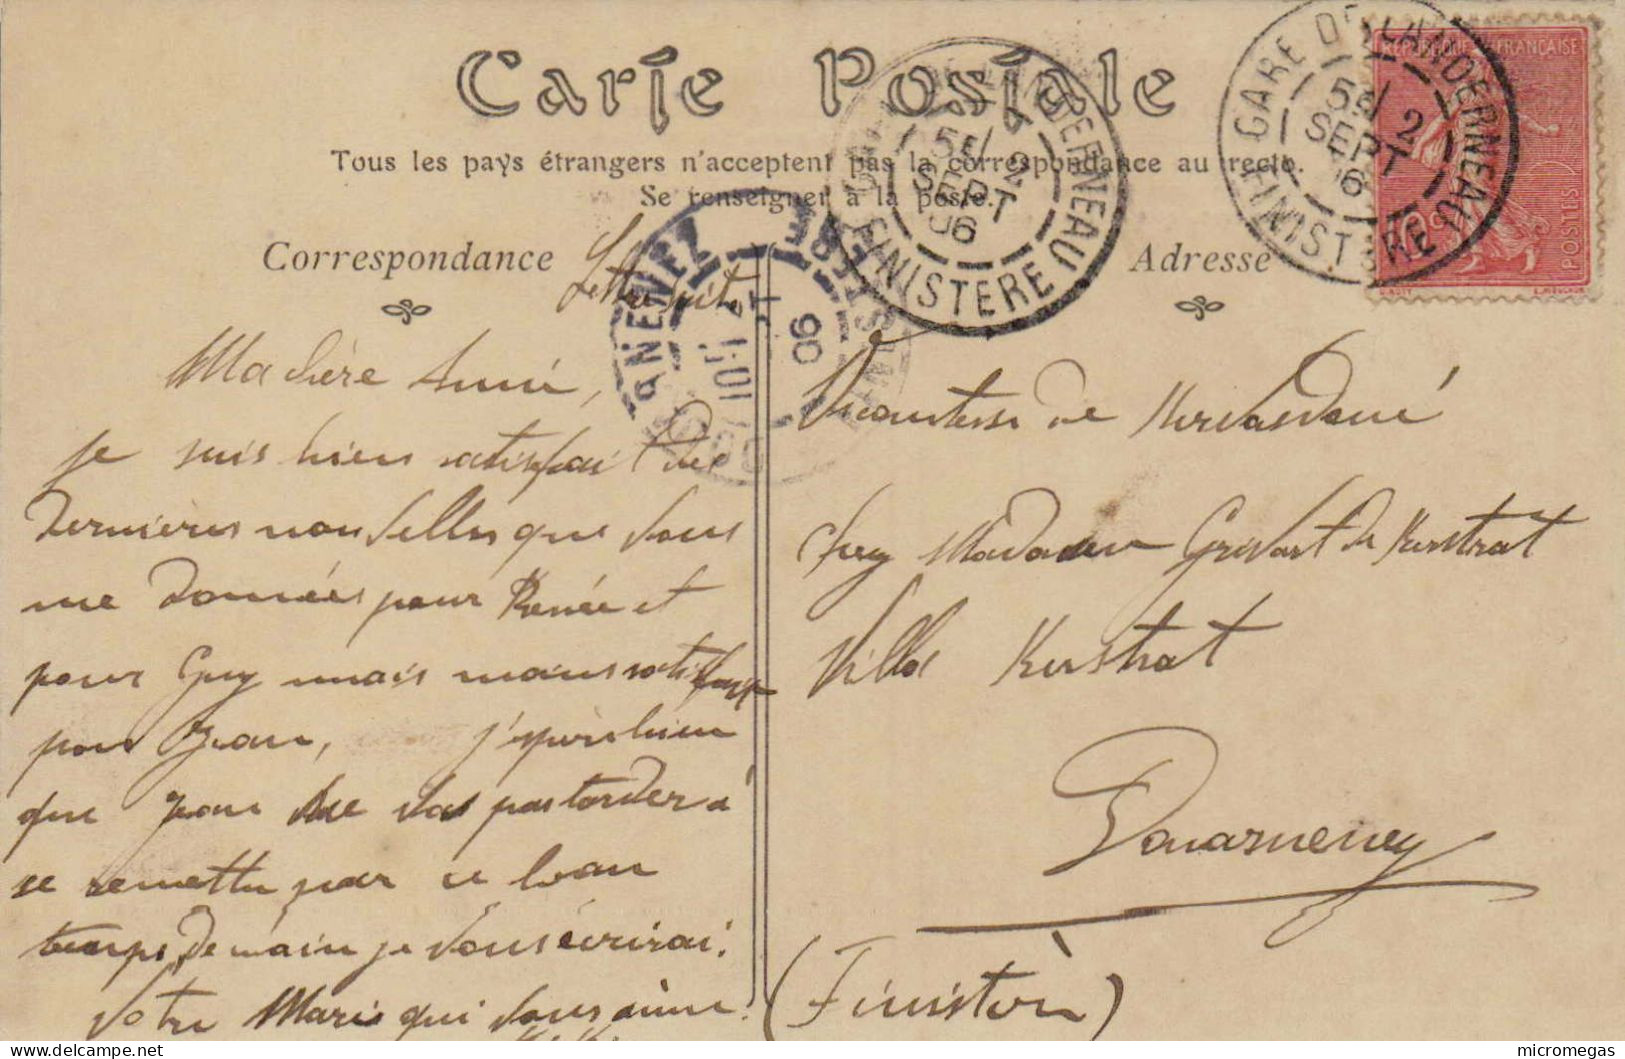 Carte Postale
Tous les pays étrangers n'acceptent pas la correspondance au recto.
Se renseigner à la poste.
Correspondance
Adresse
REPUBLIQUE FRANÇAISE
POSTES
GARE DE LANDERNEAU
5E/ 2
SEPT
06
FINISTERE
LANDERNEAU
5E/ 2
SEPT
06
FINISTERE
06
FINISTERE
Lettre suit
Ma chère Amie,
je suis bien satisfait des
dernières nouvelles que vous
me donnés pour Renée et
pour Guy mais moins satisfait
pour Jean, j'espère bien
que Jean ne va pas tarder à
se remettre par ce beau
temps, Demain je vous écrirai.
Votre Mari qui vous aime.
Vicomtesse de
chez Madame Grivart de Kerstrat
Villa Kerstrat
Douarnenez
(Finistère)
micromegas